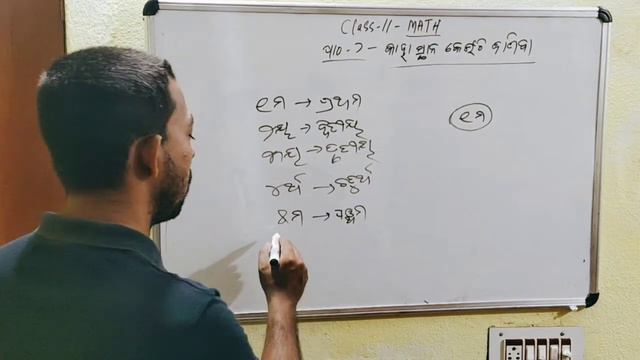 Class-II - MATH
ପାଠ-୨ - କାହା ସ୍ଥାନ କେଉଁଠି ଜାଣିବା
୧ମ → ପ୍ରଥମ
୨ୟ → ଦ୍ୱିତୀୟ
୩ୟ → ତୃତୀୟ
୪ର୍ଥ → ଚତୁର୍ଥ
୫ମ → ପଞ୍ଚମ
୧ମ